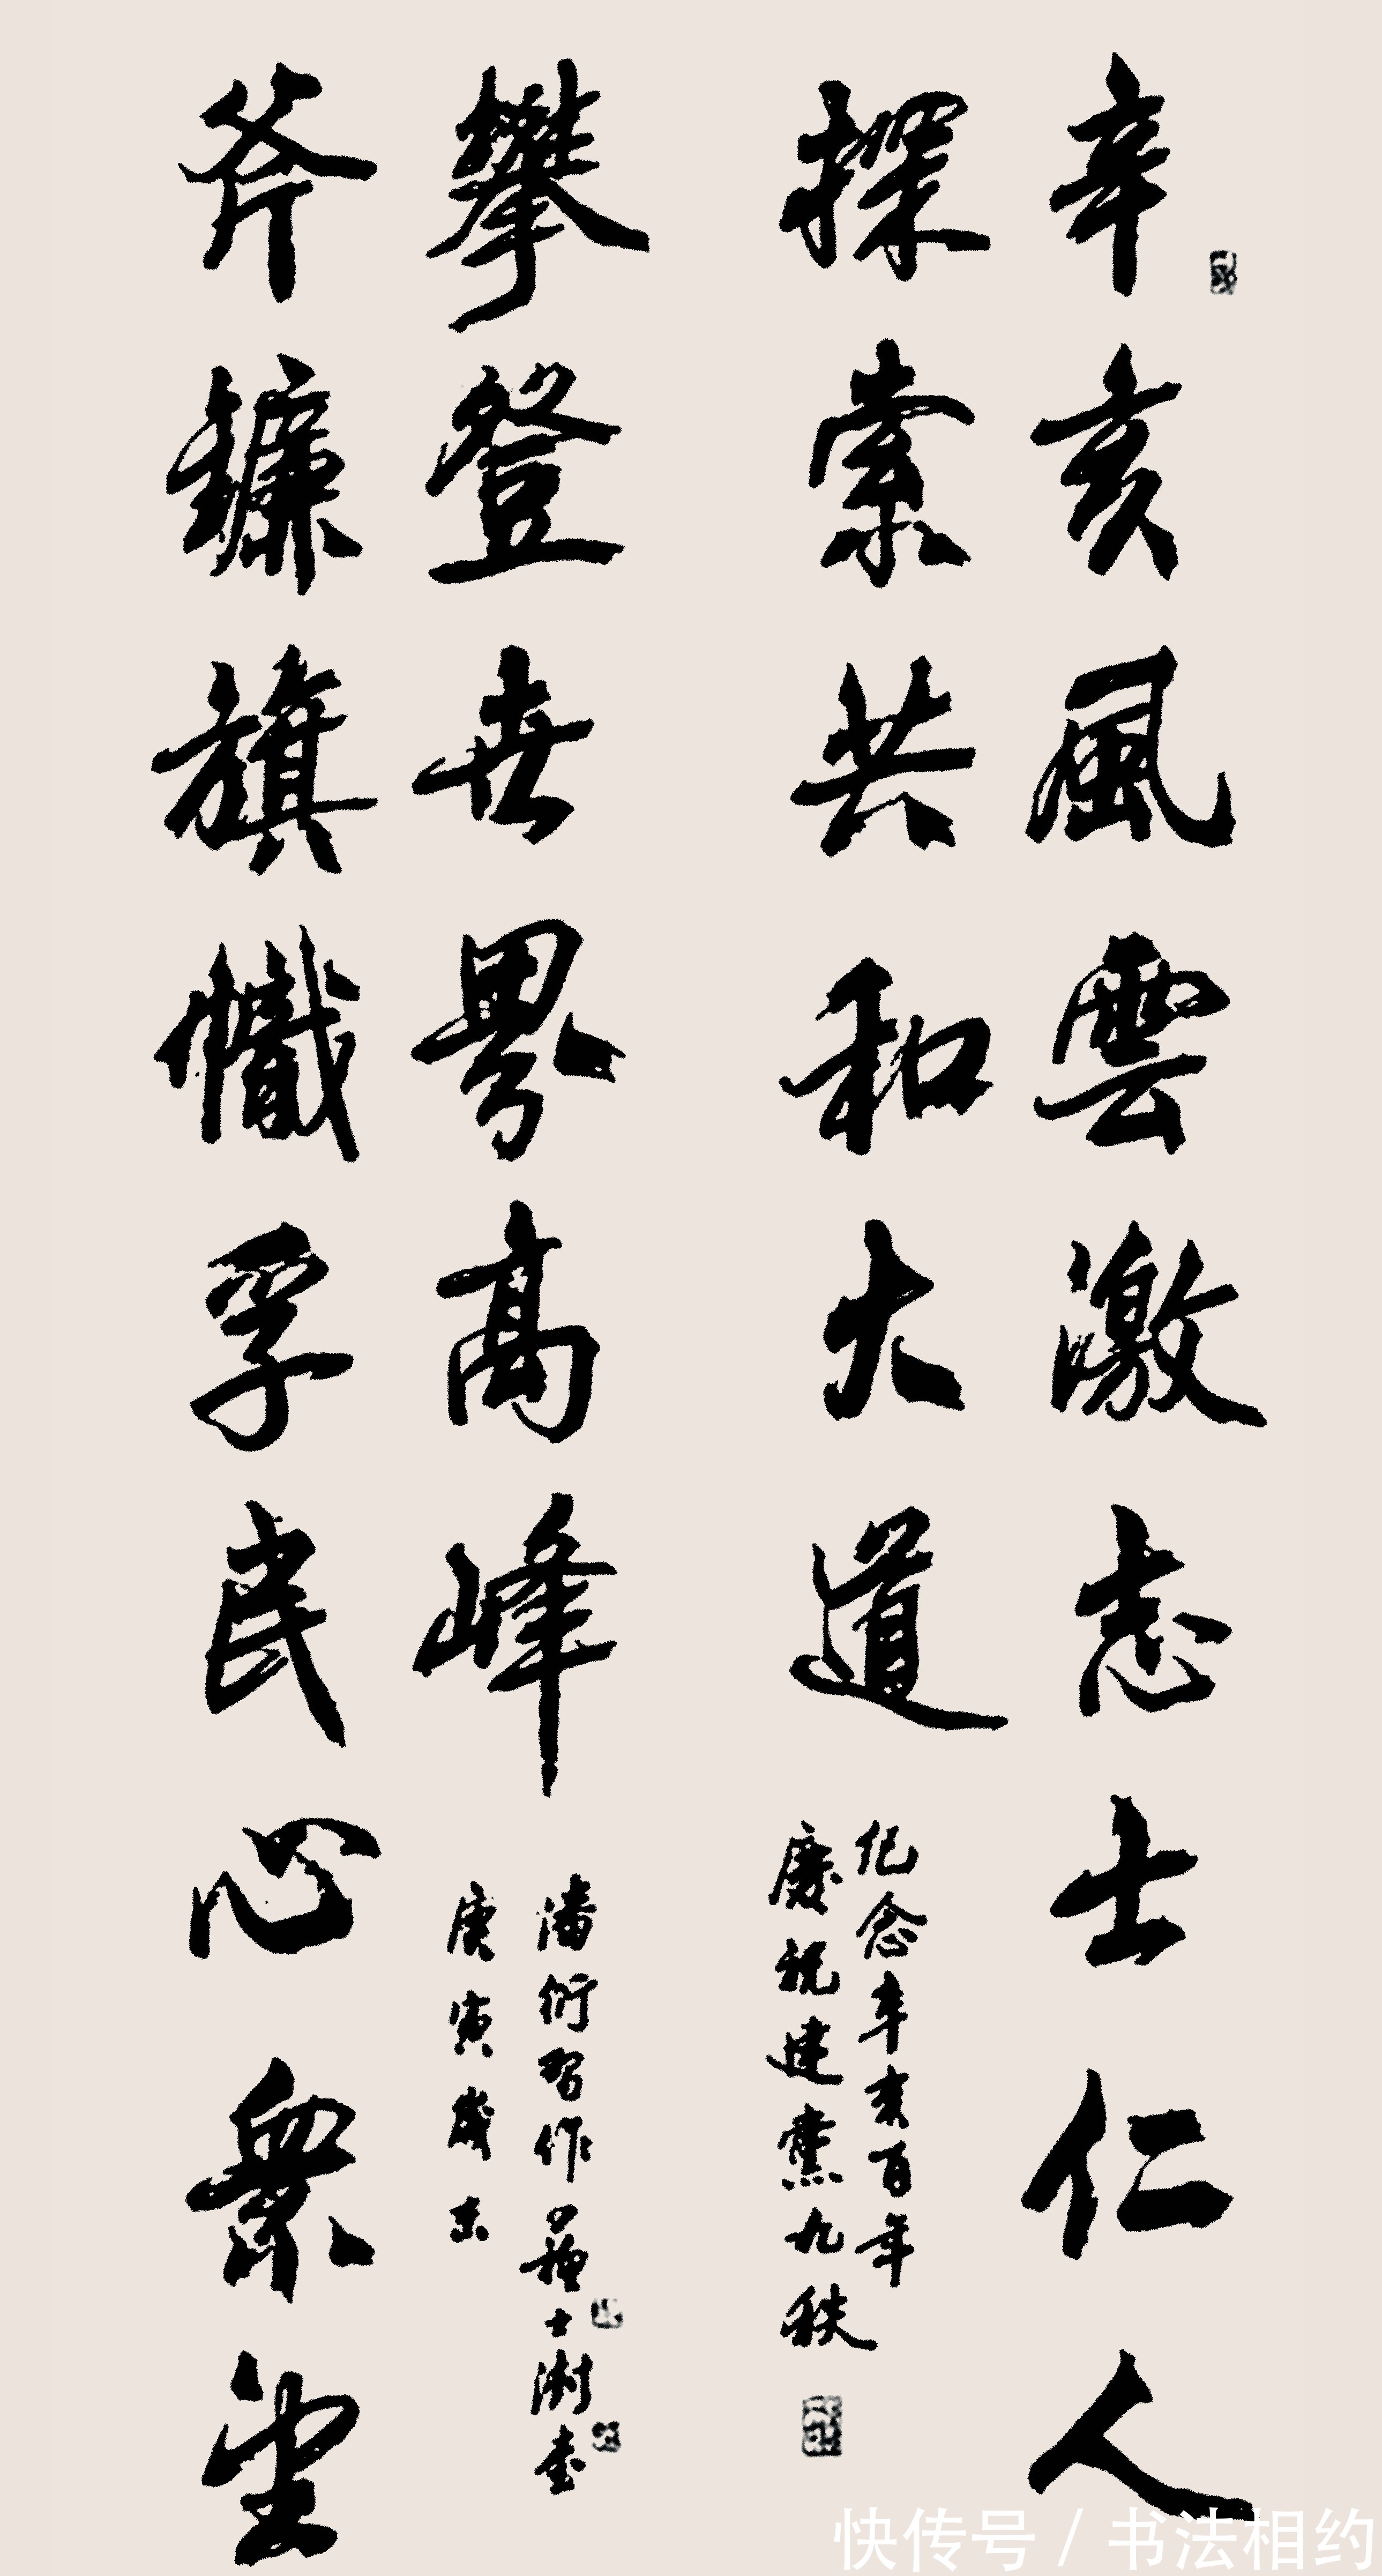 辛亥風雲激志士仁人
探索共和大道
纪念辛亥百年
慶祝建黨九秩
斧鐮旗幟孚民心衆望
攀登世界高峰
潘衍習作蘓士澍書
庚寅歲末
快传号 / 书法相约